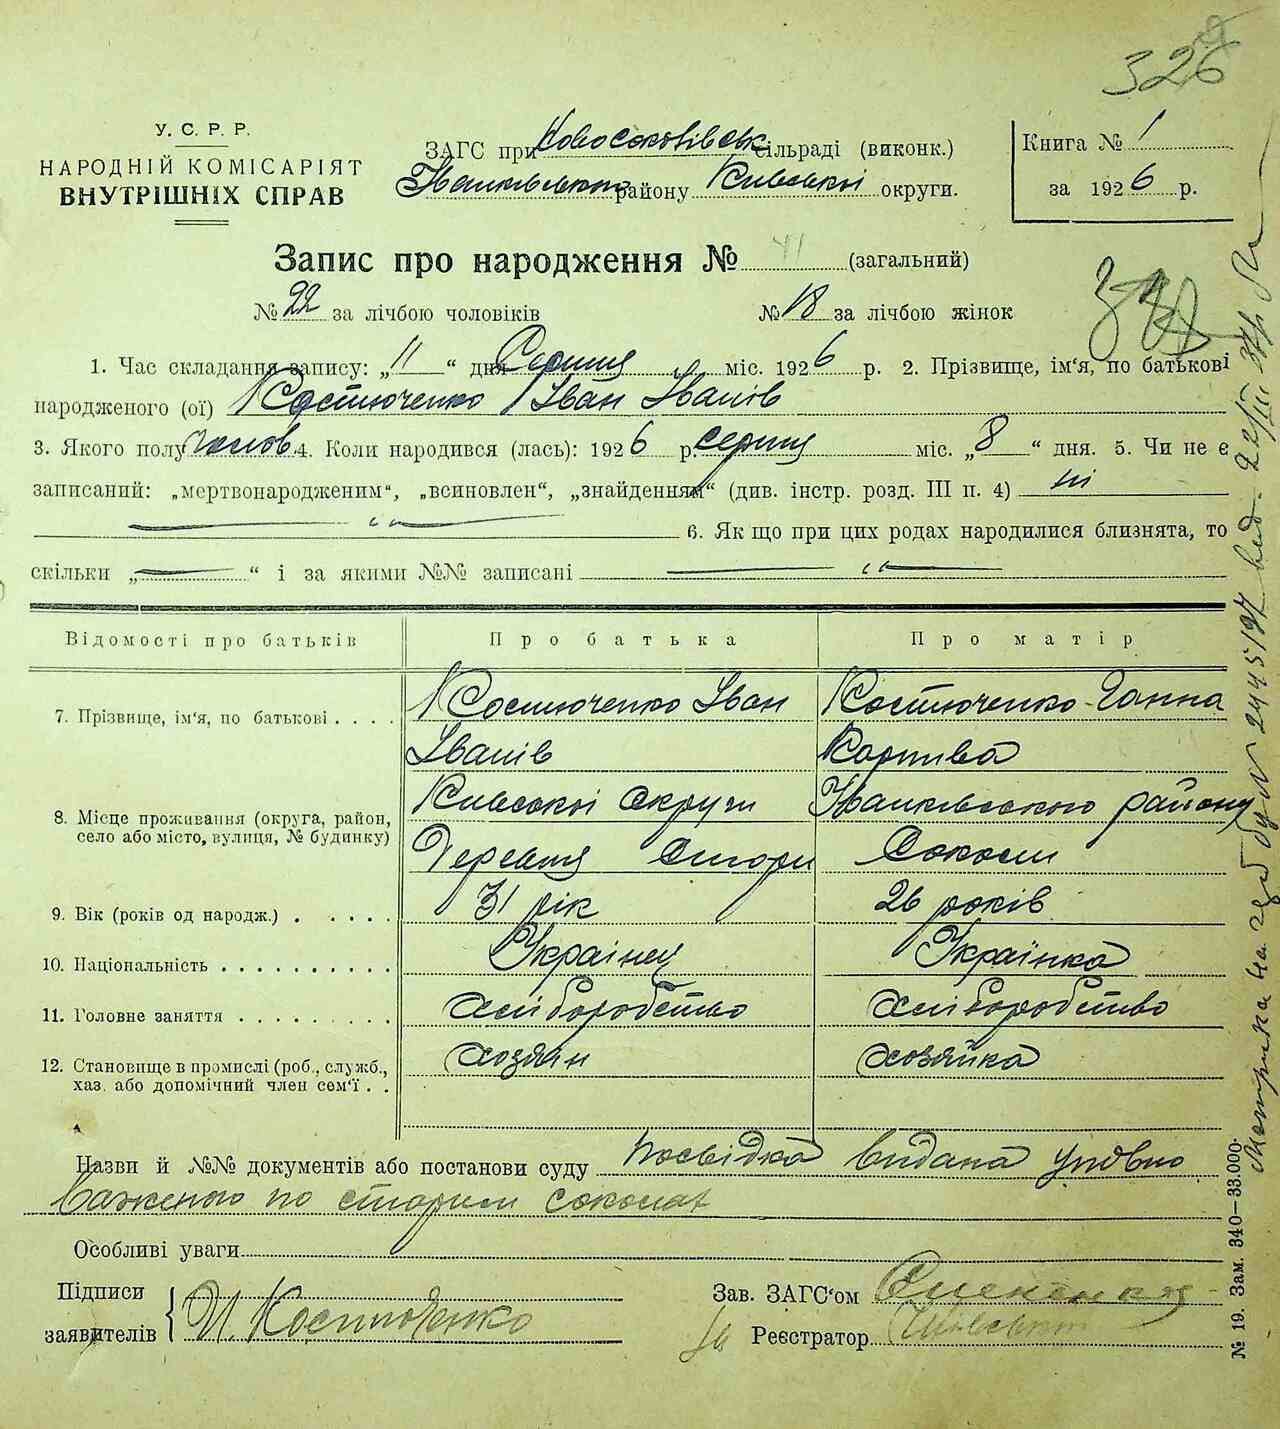 326
У. С. Р. Р.
НАРОДНІЙ КОМІСАРІЯТ
ВНУТРІШНІХ СПРАВ
ЗАГС при Новосоколівськ сільраді (виконк.)
Іванківського району Київської округи.
Книга № 1
за 1926 р.
Запис про народження № 41 (загальний)
№ 22 за лічбою чоловіків № 18 за лічбою жінок
1. Час складання запису: „11“ дня Серпня міс. 1926 р. 2. Прізвище, ім'я, по батькові
народженого (ої) Костюченко Іван Іванів
3. Якого полу чолов. 4. Коли народився (лась): 1926 р. серпня міс. „8“ дня. 5. Чи не є
записаний: „мертвонародженим“, „всиновлен“, „знайденням“ (див. інстр. розд. III п. 4) ні
6. Як що при цих родах народилися близнята, то
скільки „ “ і за якими №№ записані
Відомості про батьків Про батька Про матір
7. Прізвище, ім'я, по батькові . . . . Костюченко Іван Костюченко Ганна
Іванів Корпива
8. Місце проживання (округа, район, село або місто, вулиця, № будинку) Київської округи Іванківського району
Деревня Стари Соколи
9. Вік (років од народж.) . . . . . 31 рік 26 років
10. Національність . . . . . . . . . . Українец Українка
11. Головне заняття . . . . . . . . . хліборобство хліборобство
12. Становище в промислі (роб., служб., хаз. або допомічний член сем'ї . . хозяїн хозяйка
Назви й №№ документів або постанови суду посвідка видана уповно
важеною по старим соколах
Особливі уваги
Підписи
заявителів И. Костюченко
Зав. ЗАГС'ом
Реєстратор
№ 19. Зам. 340—33.000.